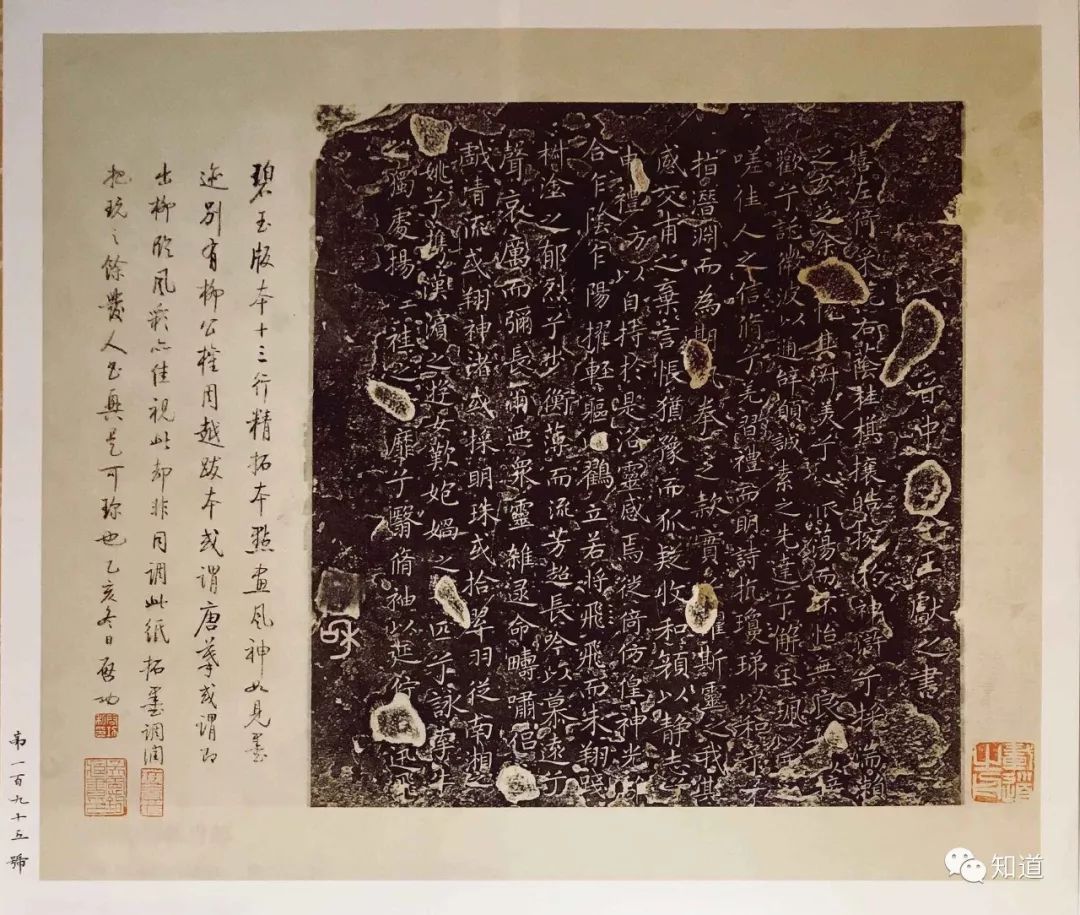 晉中令王獻之書
嬉左倚采旄右蔭桂旗攘皓捥於神滸兮採湍瀨
之玄芝余情悅其淑美兮心振蕩而不怡無良媒以接
歡兮託微波以通辭願誠素之先達兮解玉珮以要之
嗟佳人之信脩兮羌習禮而明詩抗瓊珶以和予兮
指潛淵而為期執拳之款實兮懼斯靈之我欺
感交甫之棄言悵猶豫而狐疑收和顏以靜志兮
申禮方以自持於是洛靈感焉徙倚仿偟神光離
合乍陰乍陽擢輕軀以鶴立若將飛而未翔踐
椒塗之郁烈兮步衡薄而流芳超長吟以慕遠兮
聲哀厲而彌長爾乃眾靈雜遝命疇嘯侶或
戲清流或翔神渚或採明珠或拾翠羽從南湘之二
姚兮攜漢濱之遊女歎妑媧之無匹兮詠牽牛
獨處揚袿之靡兮翳脩袖以延佇迅飛
碧玉版本十三行精拓本點畫風神如見墨
迹別有柳公權周越跋本或謂唐摹或謂即
出柳臨風彩亦佳視此却非同調此紙拓墨調潤
把玩之餘發人書興是可珍也乙亥冬日啟功
第一百九十五號
知道